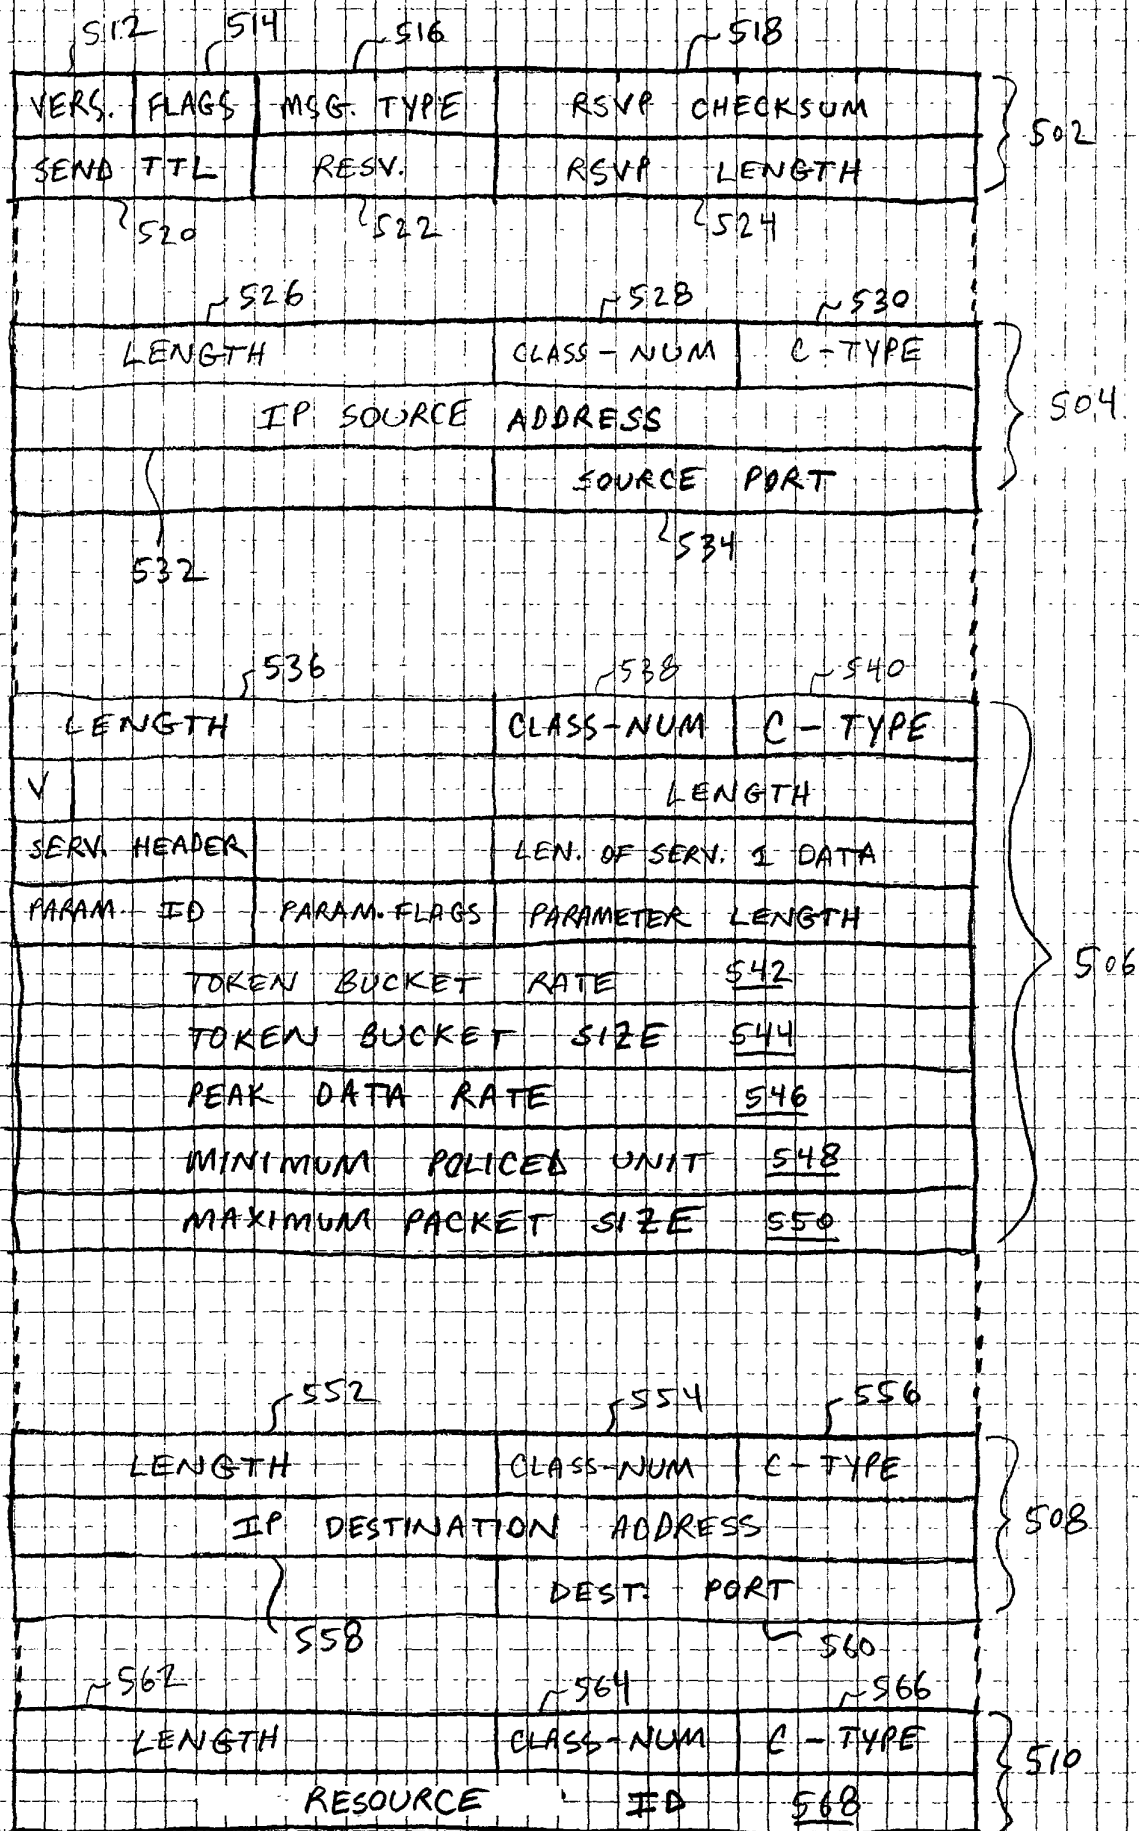 512 514 516 518
VERS. FLAGS MSG. TYPE RSVP CHECKSUM
502
SEND TTL RESV. RSVP LENGTH
520 522 524
526 528 530
LENGTH CLASS-NUM C-TYPE
IP SOURCE ADDRESS
504
SOURCE PORT
532 534
536 538 540
LENGTH CLASS-NUM C-TYPE
V LENGTH
SERV. HEADER LEN. OF SERV. 1 DATA
PARAM ID PARAM.FLAGS PARAMETER LENGTH
TOKEN BUCKET RATE 542
506
TOKEN BUCKET SIZE 544
PEAK DATA RATE 546
MINIMUM POLICED UNIT 548
MAXIMUM PACKET SIZE 550
552 554 556
LENGTH CLASS-NUM C-TYPE
IP DESTINATION ADDRESS
508
DEST. PORT
558 560
562 564 566
LENGTH CLASS-NUM C-TYPE
510
RESOURCE ID 568